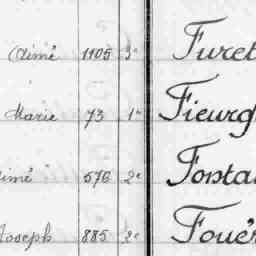 Aimé 1105 3e Furet
Marie 73 1e Fieurg
imé 576 2e Fonta
Joseph 885 2e Fouér